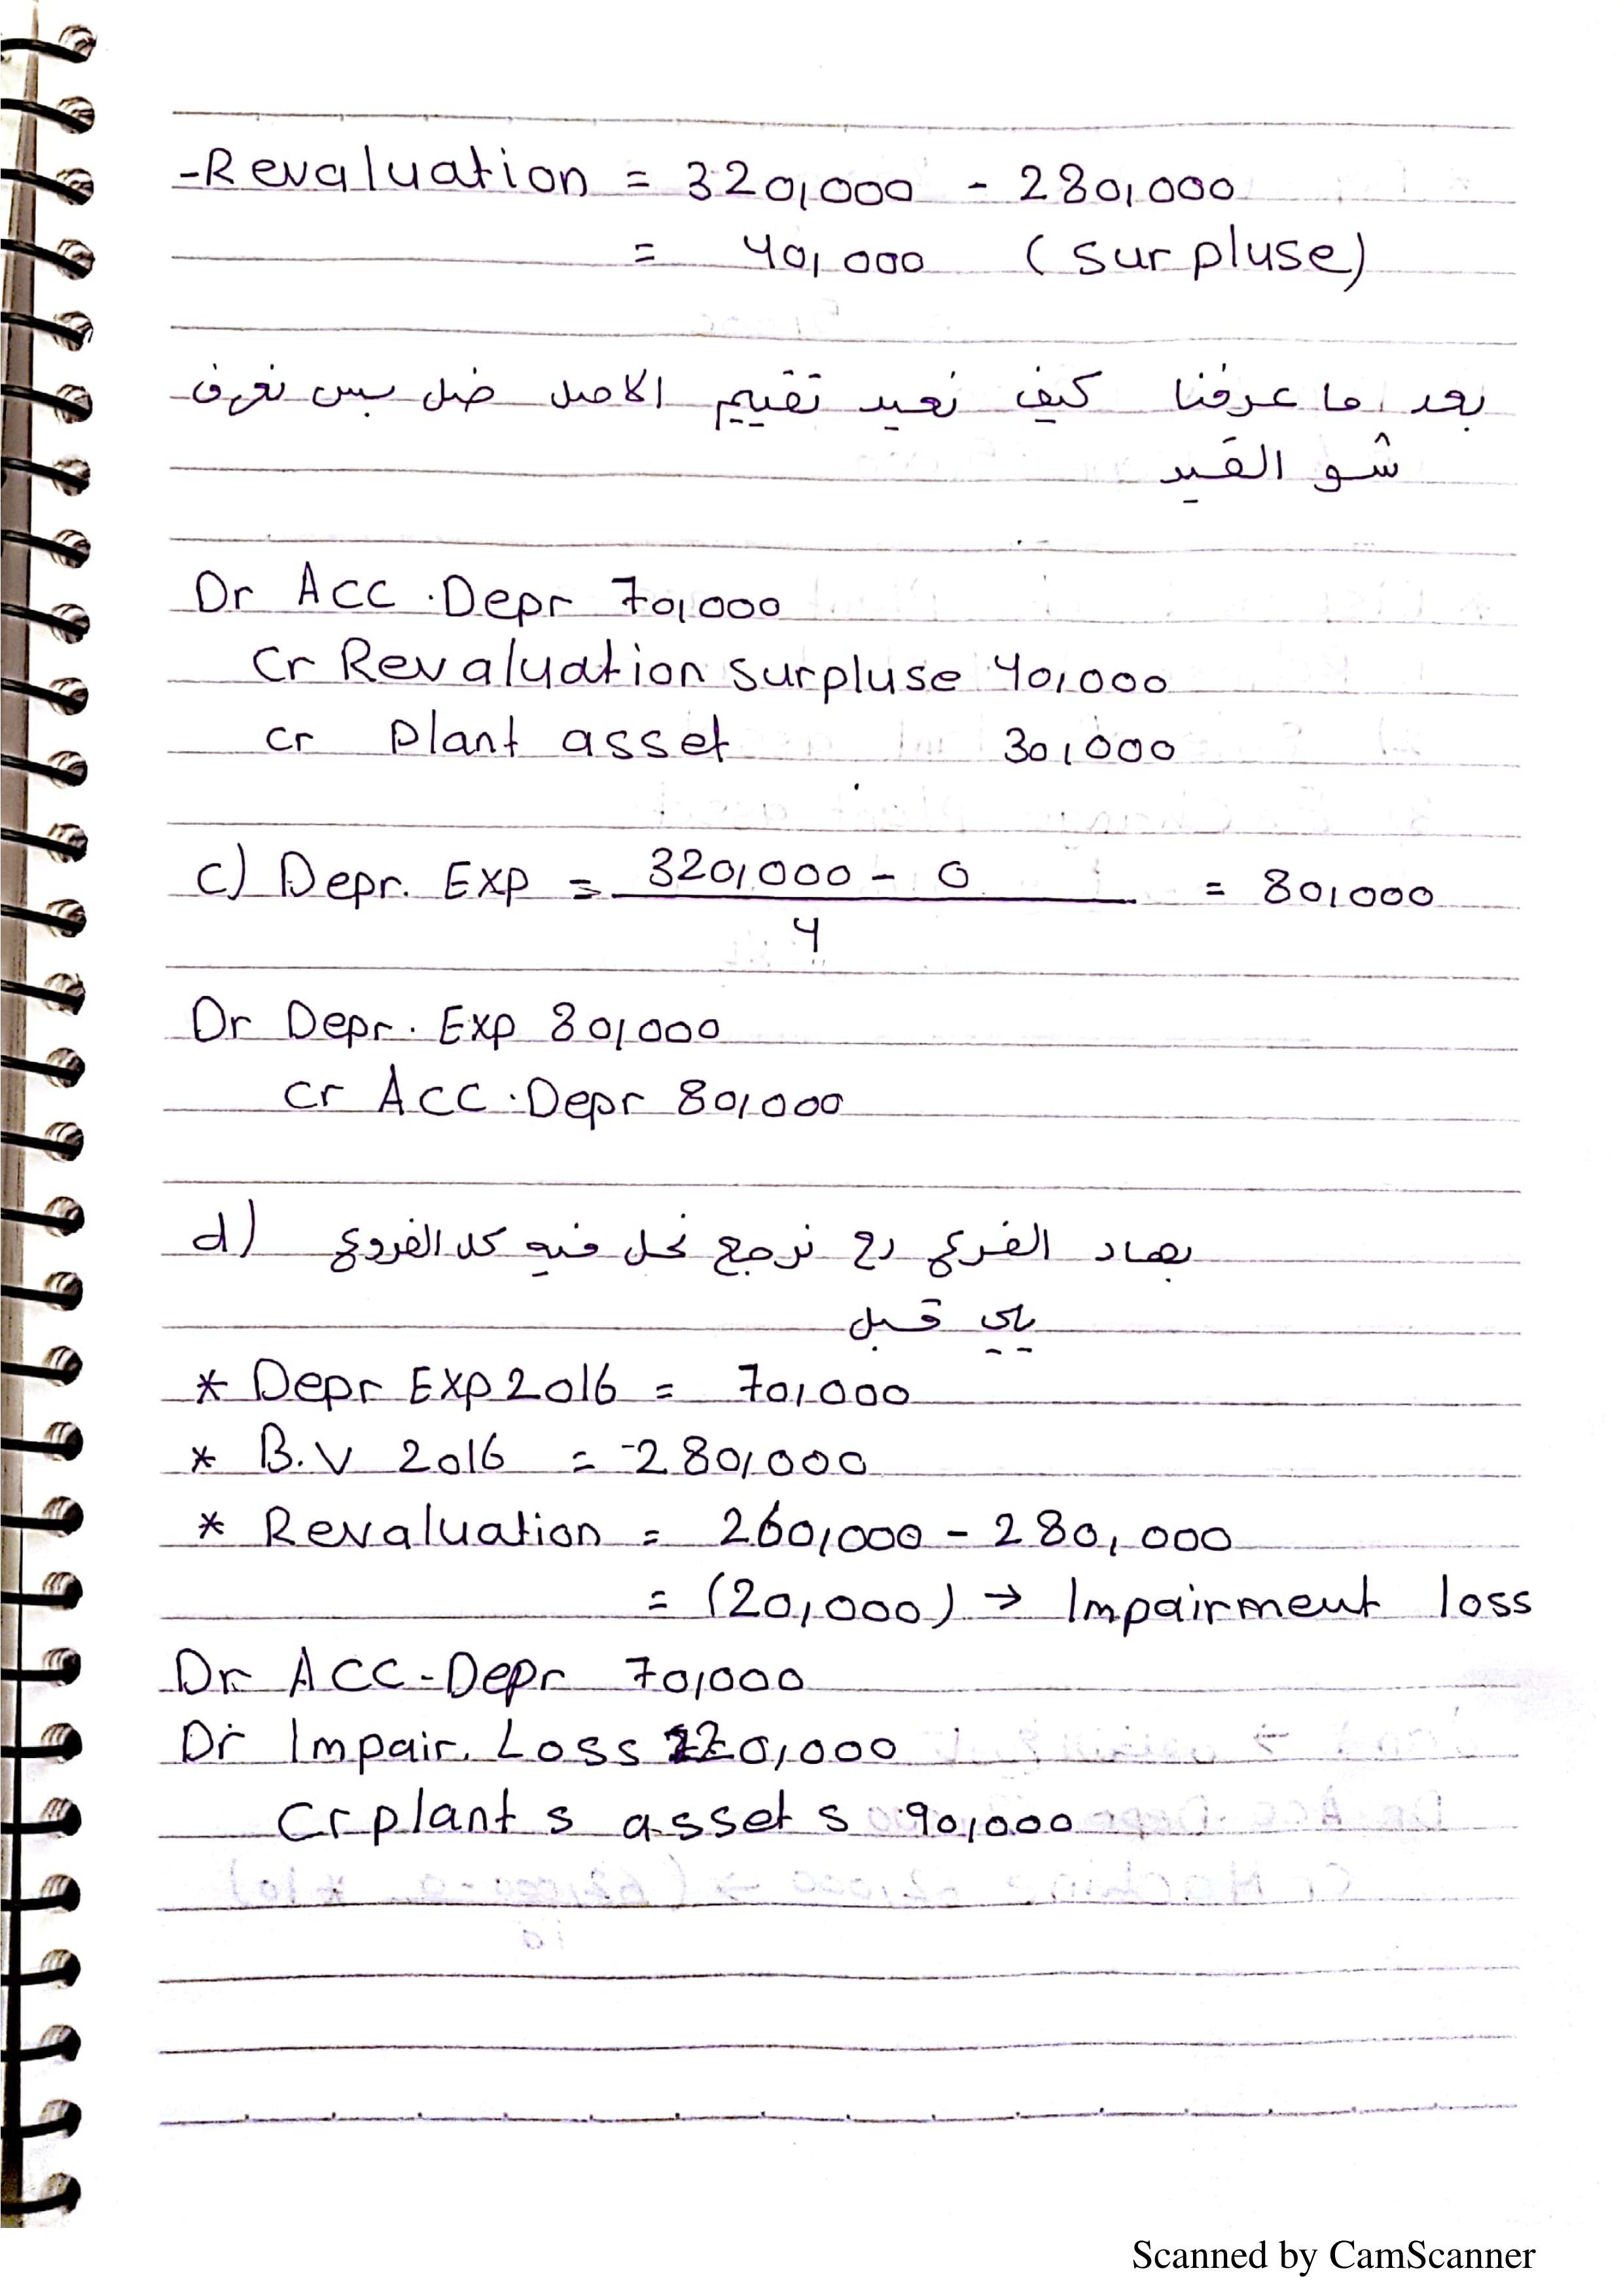 -Revaluation = 320,000 - 280,000
= 40,000 (surpluse)
بعد ما عرفنا كيف نعيد تقييم الاصل ضل بس نعرف
شو القيد
Dr Acc.Depr 70,000
Cr Revaluation surpluse 40,000
cr plant asset 30,000
c) Depr. Exp = 320,000 - 0 = 80,000
4
Dr Depr. Exp 80,000
cr Acc.Depr 80,000
d) بهاد الفرع رح نرجع نحل فيه كل الفروع
يلي قبل
* Depr Exp 2016 = 70,000
* B.V 2016 = 280,000
* Revaluation = 260,000 - 280,000
= (20,000) → Impairment loss
Dr Acc-Depr 70,000
Dr Impair. Loss 20,000
Cr plants assets 90,000
Scanned by CamScanner